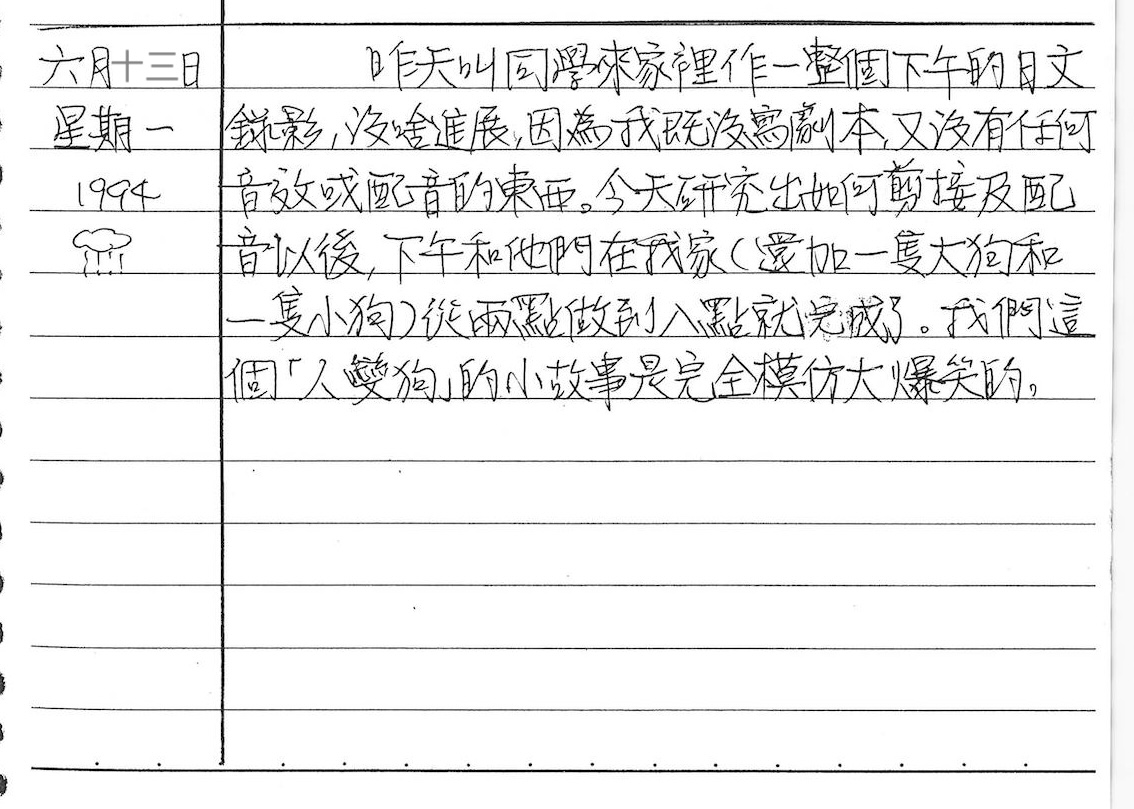 六月十三日
星期一
1994
昨天叫同學來家裡作一整個下午的日文
錄影，沒啥進展，因為我既沒寫劇本，又沒有任何
音效或配音的東西。今天研究出如何剪接及配
音以後，下午和他們在我家（還加一隻大狗和
一隻小狗）從兩點做到八點就完成了。我們這
個「人變狗」的小故事是完全模仿大爆笑的。